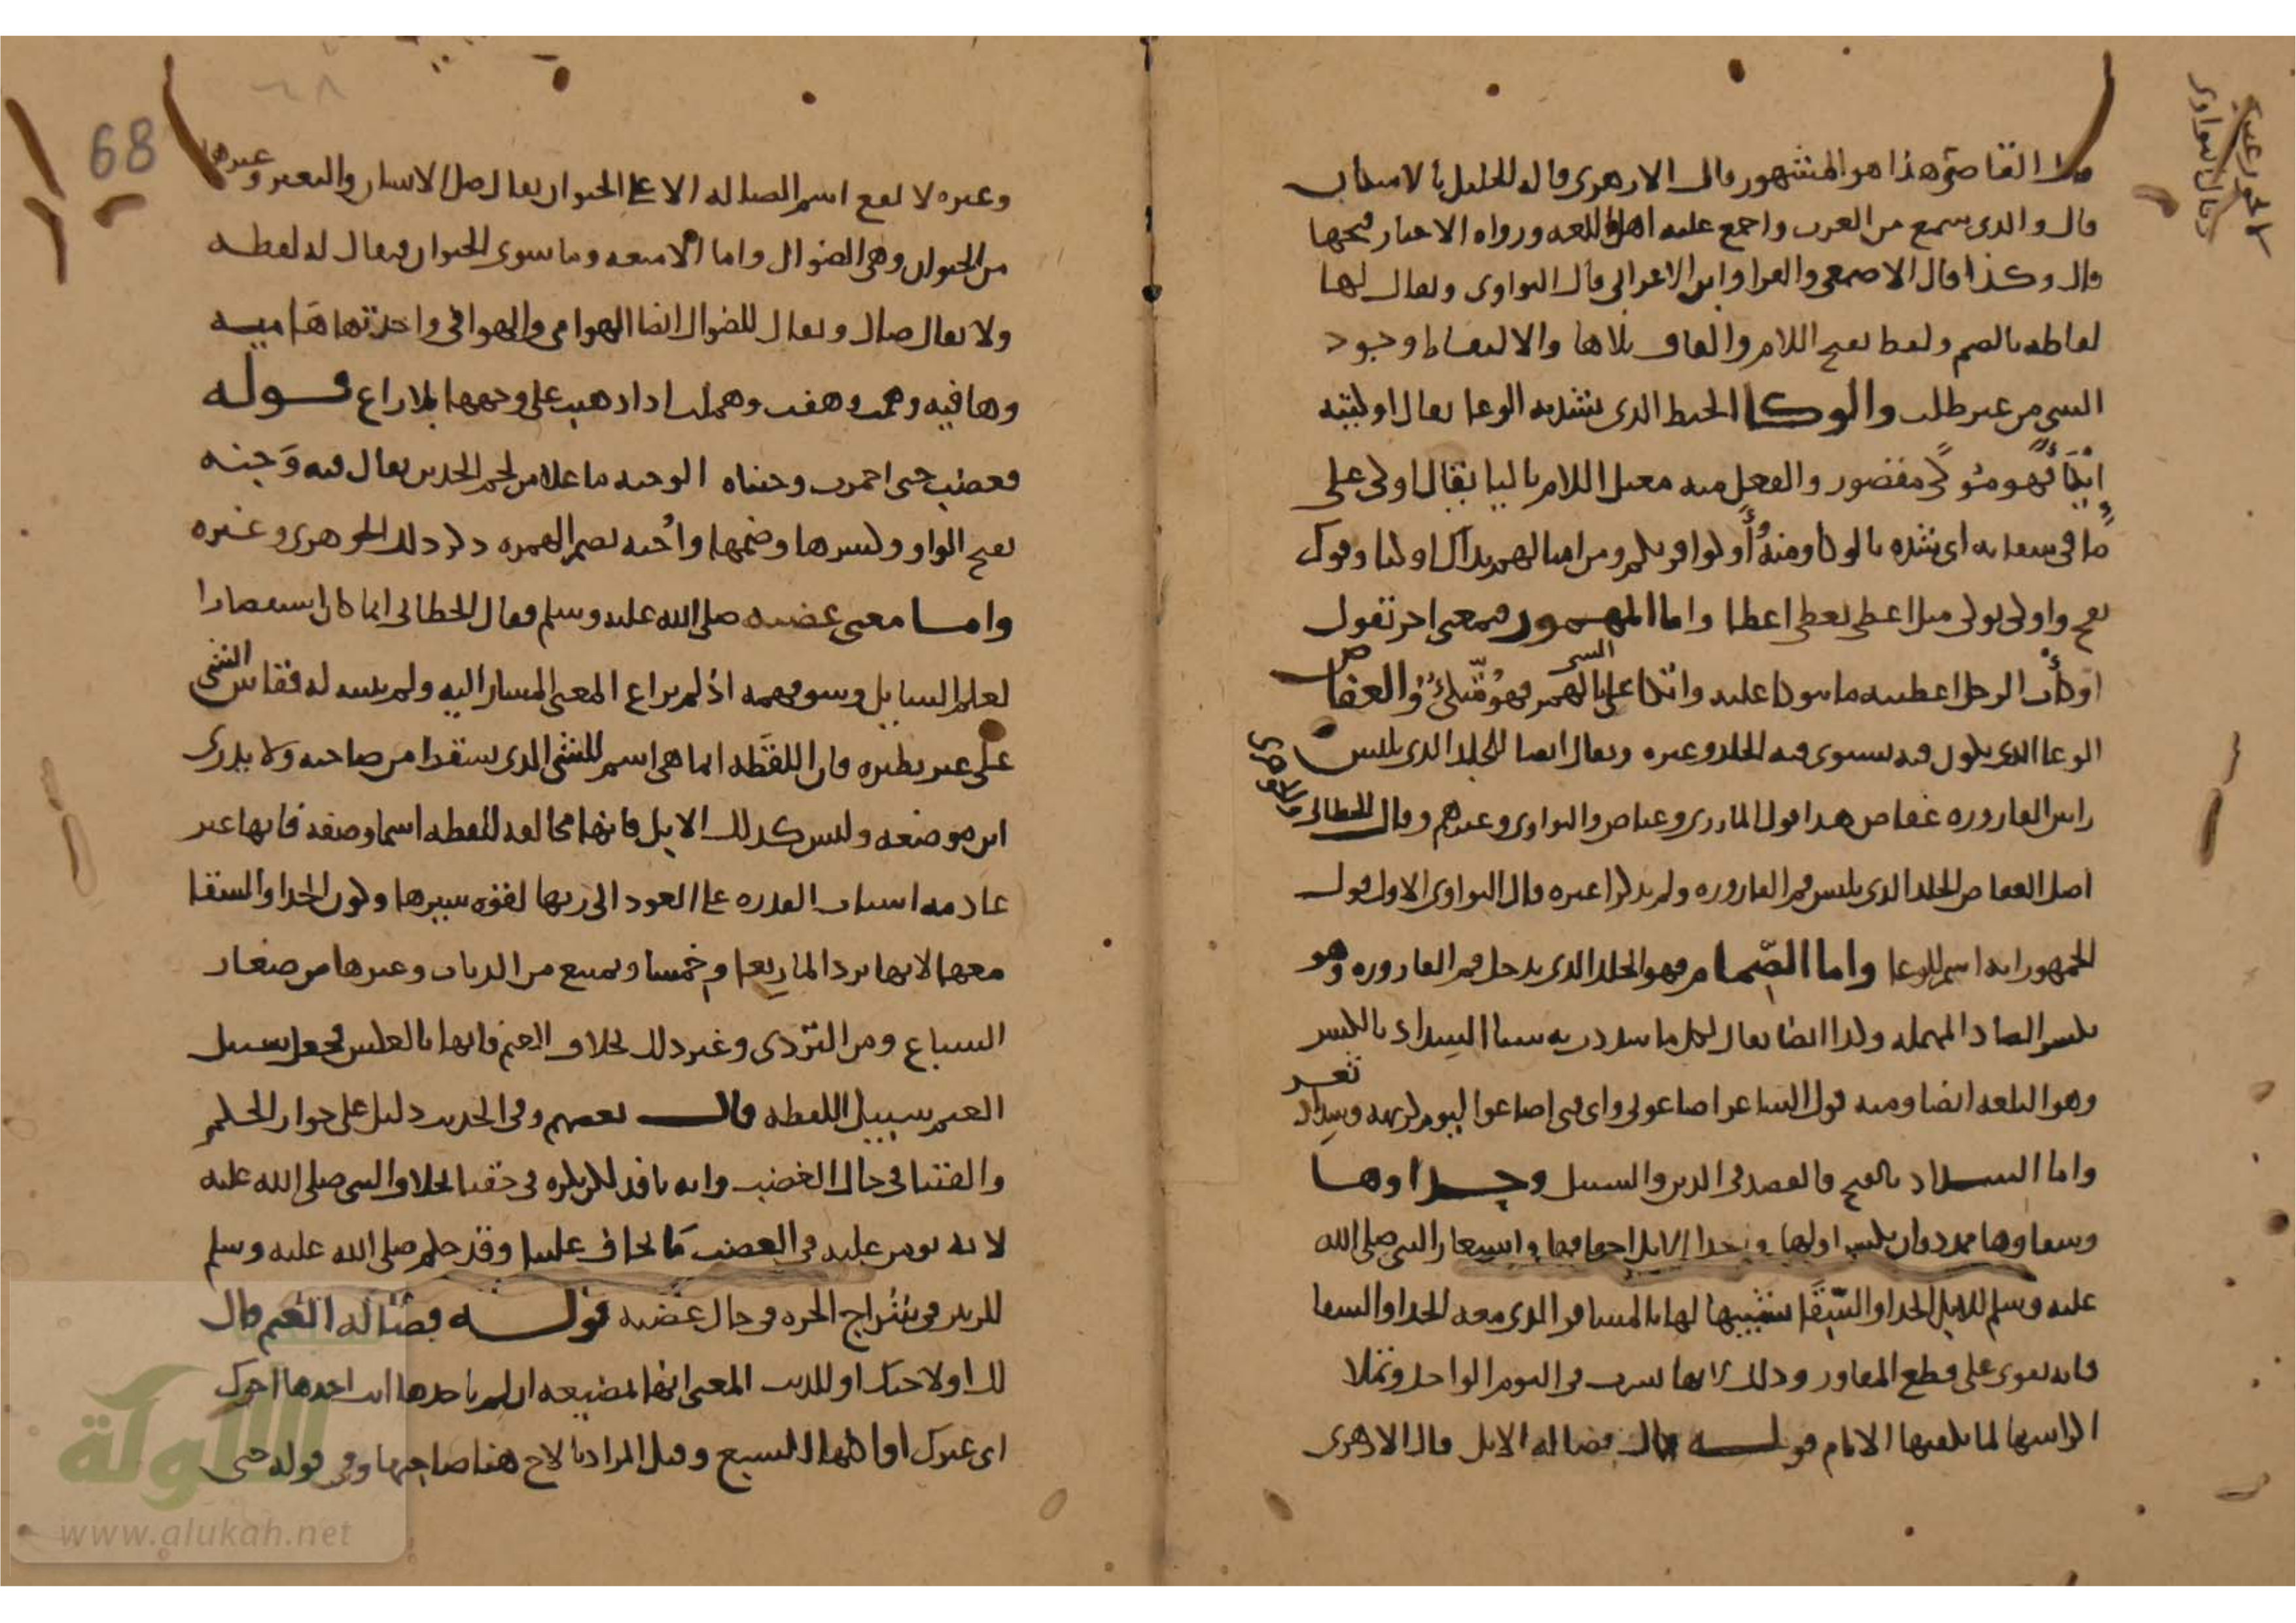 قال القاضي هذا هو المشهور قال الازهري قال الخليل بالاسكان
قال والذي سمع من العرب واجمع عليه اهل اللغه ورواه الاخبار فتحها
قال وكذا قال الاصمعي والفرا وابن الاعرابي قال النواوي ويقال لها
لقاطه بالضم ولقط بفتح اللام والقاف بلا ها والالتقاط وجود
الشي من غير طلب والوكا الخيط الذي يشد به الوعا يقال اوكيته
ايكا فهو موكى مقصور والفعل منه معتل اللام باليا يقال اوكى على
ما في سقايه اي شده بالوكا ومنه أوكوا قربكم ومن امثالهم يداك اوكتا وفوك
نفخ واوكى يوكي مثل اعطى يعطي اعطا واما المهموز فمعنى اخر تقول
اوكأت الرجل اعطيته ما يتوكا عليه واتكا على الشي بالهمز فهو متكئ والعفاص
الوعا الذي يكون فيه يستوي فيه الجلد وغيره ويقال ايضا للجلد الذي يلبس
راس القاروره عفاص هذا قول المازري وعياض والنواوي وغيرهم وقال الخطابي
اصل العفاص الجلد الذي يلبس فم القاروره ولم يذكرا غيره قال النواوي الاول قول
الجمهور انه اسم للوعا واما الصمام فهو الجلد الذي يدخل فم القاروره وهو
بكسر الصاد المهمله وكذا ايضا يقال لكل ما سددت به شيا السداد بالكسر
وهو البلغه ايضا ومنه قول الشاعر اضاعوني واي فتى اضاعوا ليوم كريهه وسداد ثغر
واما السداد بالفتح فالقصد في الدين والسبيل وحذاوها
وسقاوها ممدودان بكسر اولهما وحذا الابل اخفافها واستعار النبي صلى الله
عليه وسلم للابل الحذا والسقا تشبيها لها بالمسافر الذي معه الحذا والسقا
فانه يقوى على قطع المفاوز وذلك لانها تشرب في اليوم الواحد وتملا
اكراشها لما يكفيها الايام قوله قال فضاله الابل قال الازهري
68
وغيره لا يقع اسم الضاله الا على الحيوان يقال ضل الانسان والبعير وغيرها
من الحيوان وهي الضوال واما الامتعه وما سوى الحيوان فيقال له لقطه
ولا يقال ضال ويقال للضوال ايضا الهوامي والهوافي واحدتها هاميه
وهافيه وهمت وهفت وهملت اذا ذهبت على وجهها بلا راع قوله
فغضب حتى احمرت وجنتاه الوجنه ما علا من لحم الخدين يقال فيه وجنه
بفتح الواو وكسرها وضمها وأجنه بضم الهمزه ذكر ذلك الجوهري وغيره
واما معنى غضبه صلى الله عليه وسلم فقال الخطابي انما كان استقصارا
لعلم السايل وسو فهمه اذ لم يراع المعنى المشار اليه ولم يتنبه له فقاس الشي
على غير نظيره فان اللقطه انما هي اسم للشي الذي يسقط من صاحبه ولا يدرى
اين موضعه وليس كذلك الابل فانها مخالفه للقطه اسما وصفه فانها غير
عادمه اسباب القدره على العود الى ربها لقوه سيرها وكون الحذا والسقا
معها لانها ترد الما ربعا وخمسا وتمتنع من الذياب وغيرها من صغار
السباع ومن التردي وغير ذلك بخلاف الغنم فانها بالعكس فجعل سبيل
الغنم سبيل اللقطه قال بعضهم وفي الحديث دليل على جواز الحكم
والفتيا في حال الغضب وانه نافذ لكن يكره في حقنا بخلاف النبي صلى الله عليه
لانه يومن عليه في الغضب ما يخاف علينا وقد حكم صلى الله عليه وسلم
للزبير في شراج الحره في حال غضبه قوله فضاله الغنم قال
لك او لاخيك او للذيب المعنى انها مضيعه ان لم تاخذها انت اخذها اخوك
اي غيرك او اكلها السبع وقيل المراد بالاخ هنا صاحبها وفي قوله حتى
www.alukah.net
الألوكة